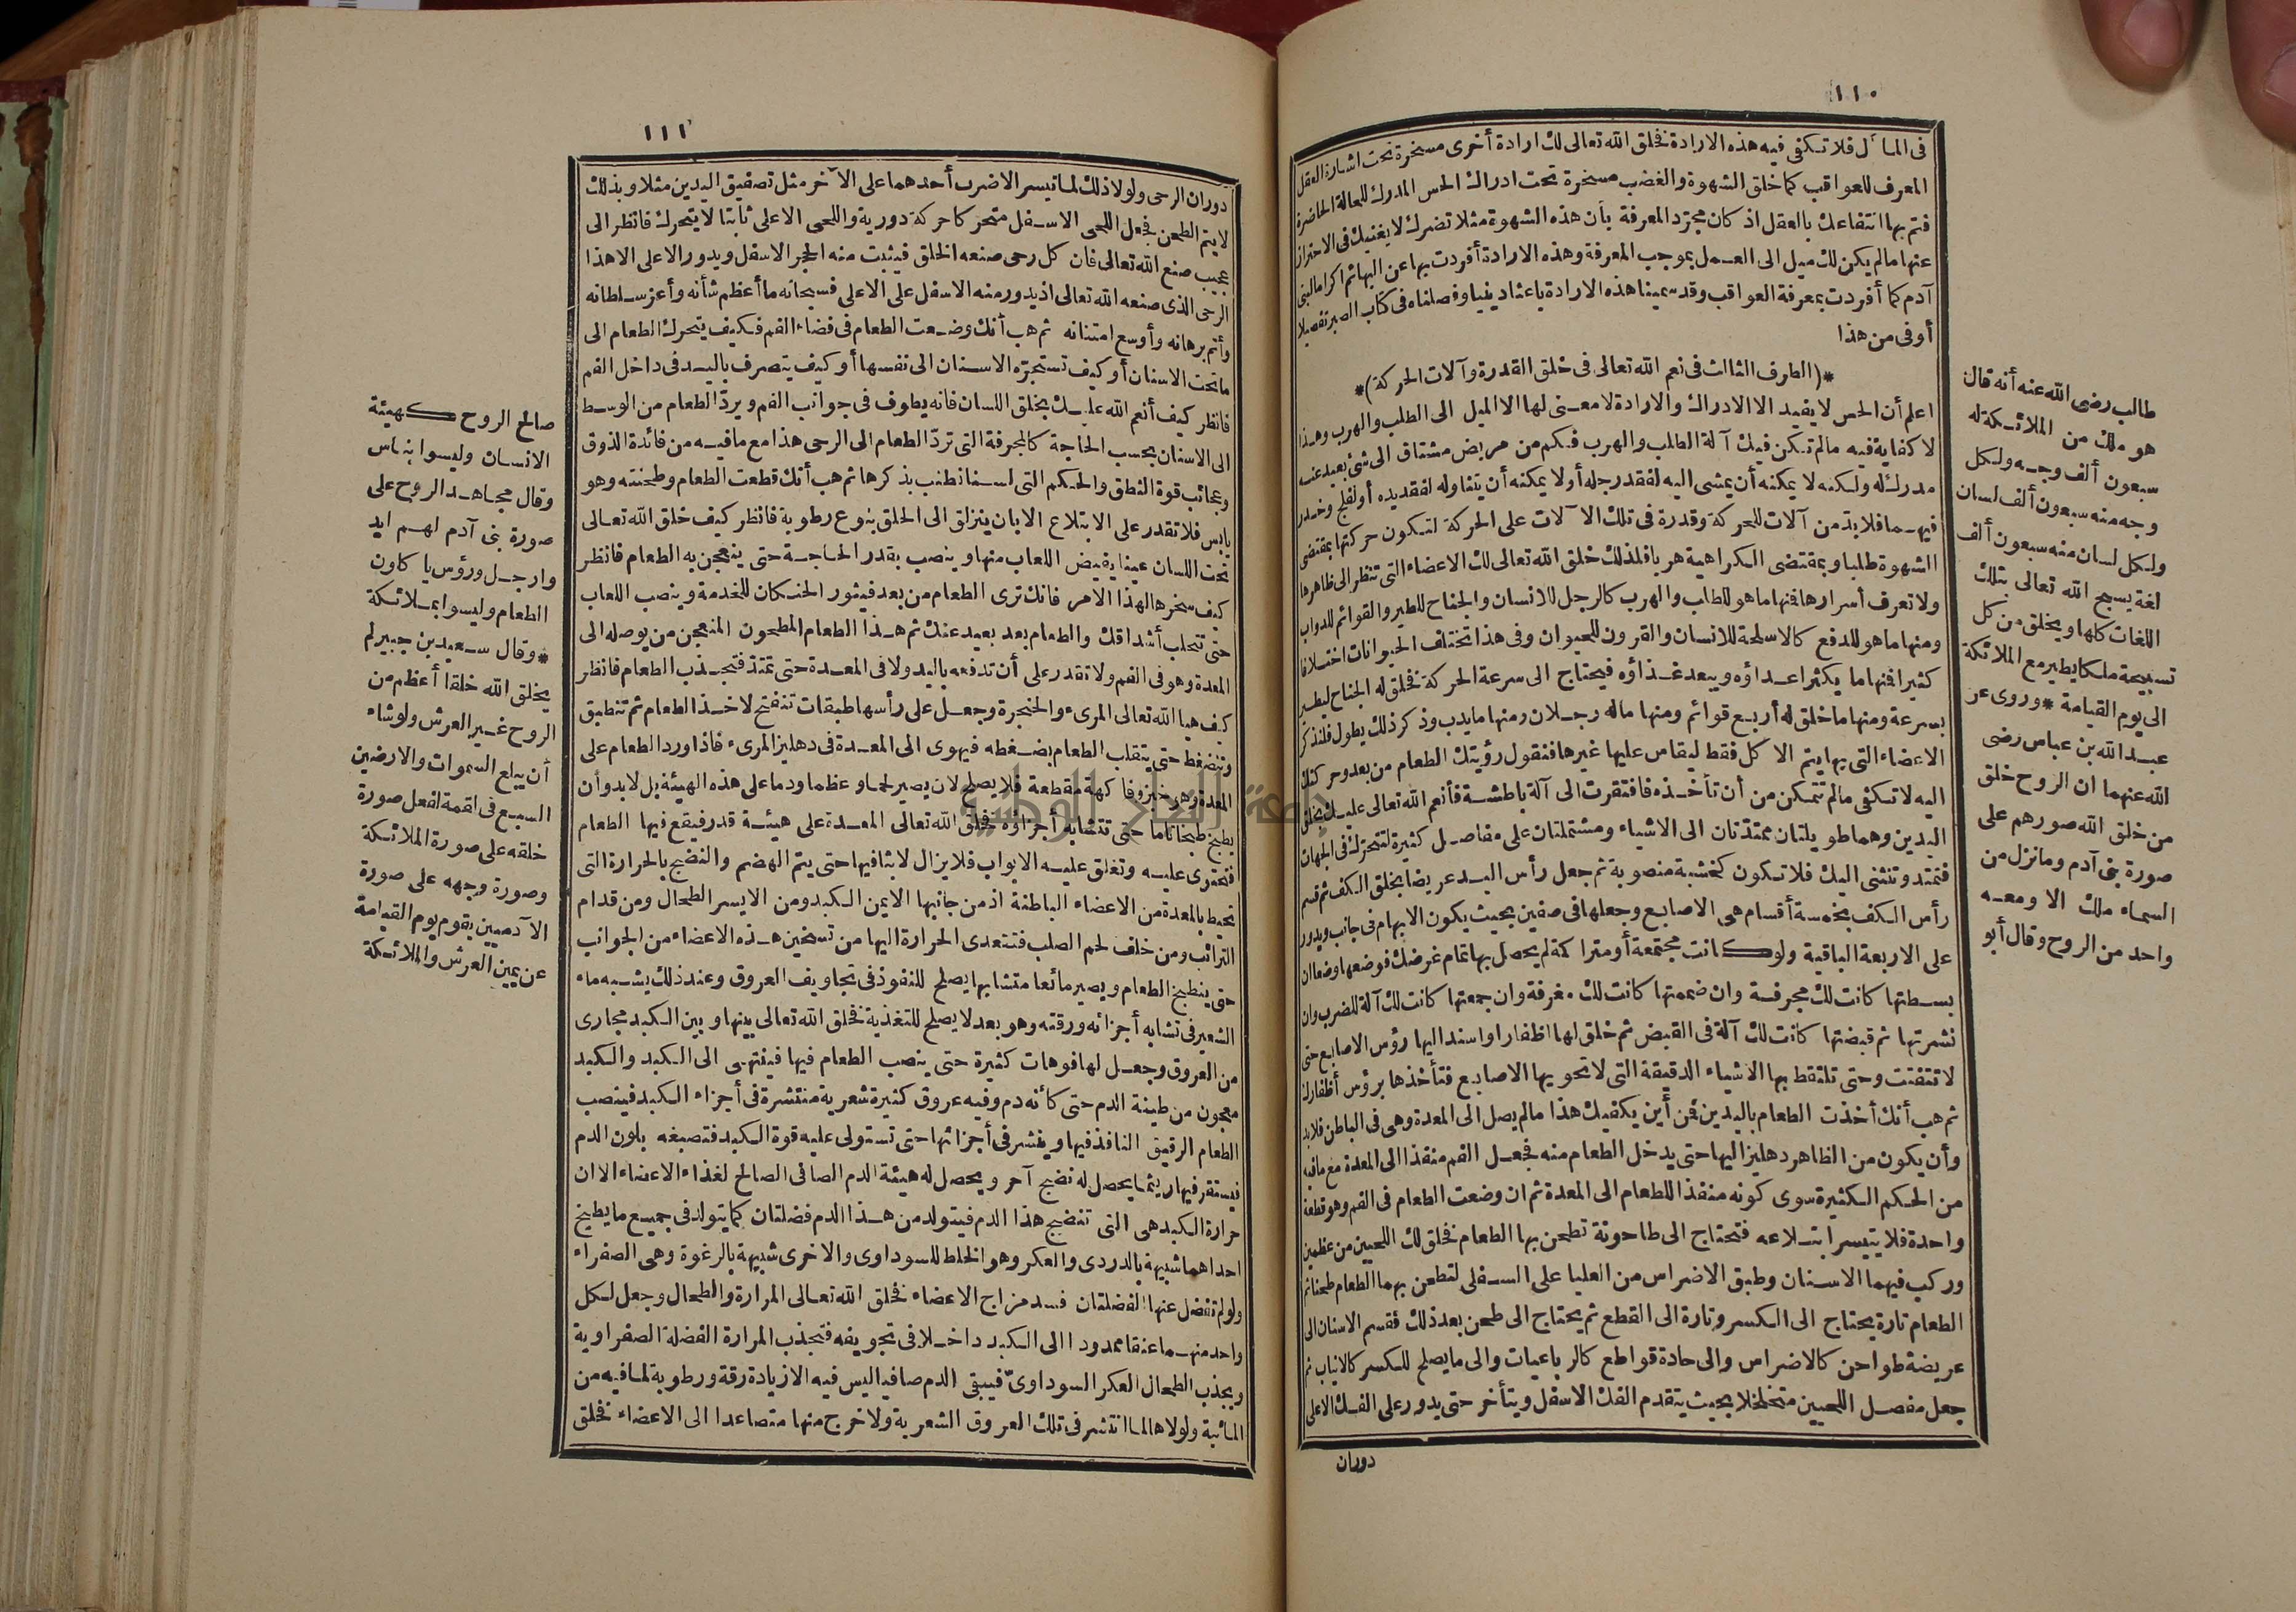 ١١٠
فى المآل فلا تكفى فيه هذه الارادة فخلق الله تعالى لك ارادة أخرى مسخرة تحت اشارة العقل
المعرف للعواقب كما خلق الشهوة والغضب مسخرة تحت ادراك الحس المدرك للحالة الحاضرة
فتم بها انتفاعك بالعقل اذ كان مجرّد المعرفة بأن هذه الشهوة مثلا تضرك لا يغنيك فى الاحتراز
عنها ما لم يكن لك ميل الى العمل بموجب المعرفة وهذه الارادة أفردت بها عن البهائم اكراما لبنى
آدم كما أفردت بمعرفة العواقب وقد سمينا هذه الارادة باعثا دينيا وفصلناه فى كتاب الصبر تفصيلا
أوفى من هذا
*(الطرف الثالث فى نعم الله تعالى فى خلق القدرة وآلات الحركة)*
اعلم أن الحس لا يفيد الا الادراك والارادة لا معنى لها الا الميل الى الطلب والهرب وهذا
لا كفاية فيه ما لم تكن فيك آلة الطلب والهرب فكم من مريض مشتاق الى شئ بعيد عنه
مدرك له ولكنه لا يمكنه أن يمشى اليه لفقد رجله أو لا يمكنه أن يتناوله لفقد يده أو لفلج وخدر
فيهما فلا بدّ من آلات للحركة وقدرة فى تلك الآلات على الحركة لتكون حركتها بمقتضى
الشهوة طلبا وبمقتضى الكراهية هربا فلذلك خلق الله تعالى لك الاعضاء التى تنظر الى ظاهرها
ولا تعرف أسرارها فمنها ما هو للطلب والهرب كالرجل للانسان والجناح للطير والقوائم للدواب
ومنها ما هو للدفع كالاسلحة للانسان والقرون للحيوان وفى هذا تختلف الحيوانات اختلافا
كثيرا فمنها ما يكثر اعداؤه ويبعد غذاؤه فيحتاج الى سرعة الحركة فخلق له الجناح ليطير
بسرعة ومنها ما خلق له أربع قوائم ومنها ما له رجلان ومنها ما يدب وذكر ذلك يطول فلنذكر
الاعضاء التى بها يتم الاكل فقط ليقاس عليها غيرها فنقول رؤيتك الطعام من بعد وحركتك
اليه لا تكفى ما لم تتمكن من أن تأخذه فافتقرت الى آلة باطشة فأنعم الله تعالى عليك بخلق
اليدين وهما طويلتان ممتدّتان الى الاشياء ومشتملتان على مفاصل كثيرة لتتحرك فى الجهات
فتمتد وتنثنى اليك فلا تكون كخشبة منصوبة ثم جعل رأس اليد عريضا بخلق الكف ثم قسم
رأس الكف بخمسة أقسام هى الاصابع وجعلها فى صفين بحيث يكون الابهام فى جانب ويدور
على الاربعة الباقية ولو كانت مجتمعة أو متراكمة لم يحصل بها تمام غرضك فوضعها وضعا ان
بسطتها كانت لك مجرفة وان ضممتها كانت لك مغرفة وان جمعتها كانت لك آلة للضرب وان
نشرتها ثم قبضتها كانت لك آلة فى القبض ثم خلق لها اظفارا واسند اليها رؤس الاصابع حتى
لا تتفتت وحتى تلتقط بها الاشياء الدقيقة التى لا تحويها الاصابع فتأخذها برؤس أظفارك
ثم هب أنك أخذت الطعام باليدين فمن أين يكفيك هذا ما لم يصل الى المعدة وهى فى الباطن فلا بد
وأن يكون من الظاهر دهليز اليها حتى يدخل الطعام منه فجعل الفم منفذا الى المعدة مع ما فيه
من الحكم الكثيرة سوى كونه منفذا للطعام الى المعدة ثم ان وضعت الطعام فى الفم وهو قطعة
واحدة فلا يتيسر ابتلاعه فتحتاج الى طاحونة تطحن بها الطعام فخلق لك اللحيين من عظمين
وركب فيهما الاسنان وطبق الاضراس من العليا على السفلى لتطحن بهما الطعام طحنا ثم
الطعام تارة يحتاج الى الكسر وتارة الى القطع ثم يحتاج الى طحن بعد ذلك فقسم الاسنان الى
عريضة طواحن كالاضراس والى حادة قواطع كالرباعيات والى ما يصلح للكسر كالانياب ثم
جعل مفصل اللحيين متخلخلا بحيث يتقدم الفك الاسفل ويتأخر حتى يدور على الفك الاعلى
دوران
طالب رضى الله عنه أنه قال
هو ملك من الملائكة له
سبعون ألف وجه ولكل
وجه منه سبعون ألف لسان
ولكل لسان منه سبعون ألف
لغة يسبح الله تعالى بتلك
اللغات كلها ويخلق من كل
تسبيحة ملكا يطير مع الملائكة
الى يوم القيامة * وروى عن
عبد الله بن عباس رضى
الله عنهما ان الروح خلق
من خلق الله صورهم على
صورة بنى آدم وما نزل من
السماء ملك الا ومعه
واحد من الروح وقال أبو
١١١
دوران الرحى ولولا ذلك لما تيسر الا ضرب أحدهما على الآخر مثل تصفيق اليدين مثلا وبذلك
لا يتم الطحن فجعل اللحى الاسفل متحركا حركة دورية واللحى الاعلى ثابتا لا يتحرك فانظر الى
عجيب صنع الله تعالى فان كل رحى صنعه الخلق فيثبت منه الحجر الاسفل ويدور الاعلى الا هذا
الرحى الذى صنعه الله تعالى اذ يدور منه الاسفل على الاعلى فسبحانه ما أعظم شأنه وأعز سلطانه
وأتم برهانه وأوسع امتنانه ثم هب أنك وضعت الطعام فى فضاء الفم فكيف يتحرك الطعام الى
ما تحت الاسنان أو كيف تستجرّه الاسنان الى نفسها أو كيف يتصرف باليد فى داخل الفم
فانظر كيف أنعم الله عليك بخلق اللسان فانه يطوف فى جوانب الفم ويردّ الطعام من الوسط
الى الاسنان بحسب الحاجة كالمجرفة التى تردّ الطعام الى الرحى هذا مع ما فيه من فائدة الذوق
وعجائب قوة النطق والحكم التى لسنا نطنب بذكرها ثم هب أنك قطعت الطعام وطحنته وهو
يابس فلا تقدر على الابتلاع الا بان ينزلق الى الحلق بنوع رطوبة فانظر كيف خلق الله تعالى
تحت اللسان عينا يفيض اللعاب منها وينصب بقدر الحاجة حتى ينعجن به الطعام فانظر
كيف سخرها لهذا الامر فانك ترى الطعام من بعد فيثور الحنكان للخدمة وينصب اللعاب
حتى تتحلب أشداقك والطعام بعد بعيد عنك ثم هذا الطعام المطحون المنعجن من يوصله الى
المعدة وهو فى الفم ولا تقدر على أن تدفعه باليد ولا فى المعدة حتى تمتد فتجذب الطعام فانظر
كيف هيأ الله تعالى المرىء والحنجرة وجعل على رأسها طبقات تنفتح لاخذ الطعام ثم تنطبق
وتنضغط حتى يتقلب الطعام بضغطه فيهوى الى المعدة فى دهليز المرىء فاذا ورد الطعام على
المعدة وهو خبز وفاكهة مقطعة فلا يصلح لان يصير لحما وعظما ودما على هذه الهيئة بل لا بد وأن
يطبخ طبخا تاما حتى تتشابه أجزاؤه فخلق الله تعالى المعدة على هيئة قدر فيقع فيها الطعام
فتحتوى عليه وتغلق عليه الابواب فلا يزال لابثا فيها حتى يتم الهضم والنضج بالحرارة التى
تحيط بالمعدة من الاعضاء الباطنة اذ من جانبها الايمن الكبد ومن الايسر الطحال ومن قدام
الترائب ومن خلف لحم الصلب فتتعدى الحرارة اليها من تسخين هذه الاعضاء من الجوانب
حتى ينطبخ الطعام ويصير مائعا متشابها يصلح للنفوذ فى تجاويف العروق وعند ذلك يشبه ماء
الشعير فى تشابه أجزائه ورقته وهو بعد لا يصلح للتغذية فخلق الله تعالى بينها وبين الكبد مجارى
من العروق وجعل لها فوهات كثيرة حتى ينصب الطعام فيها فينتهى الى الكبد والكبد
معجون من طينة الدم حتى كأنه دم وفيه عروق كثيرة شعرية منتشرة فى أجزاء الكبد فينصب
الطعام الرقيق النافذ فيها وينتشر فى أجزائها حتى تستولى عليه قوة الكبد فتصبغه بلون الدم
فيستقر فيها ريثما يحصل له نضج آخر ويحصل له هيئة الدم الصافى الصالح لغذاء الاعضاء الا ان
حرارة الكبد هى التى تنضج هذا الدم فيتولد من هذا الدم فضلتان كما يتولد فى جميع ما يطبخ
احداهما شبيهة بالدردى والعكر وهو الخلط السوداوى والاخرى شبيهة بالرغوة وهى الصفراء
ولو لم تفضل عنها الفضلتان فسد مزاج الاعضاء فخلق الله تعالى المرارة والطحال وجعل لكل
واحد منهما عنقا ممدودا الى الكبد داخلا فى تجويفه فتجذب المرارة الفضلة الصفراوية
ويجذب الطحال العكر السوداوىّ فيبقى الدم صافيا ليس فيه الا زيادة رقة ورطوبة لما فيه من
المائية ولولاها لما انتشر فى تلك العروق الشعرية ولا خرج منها متصاعدا الى الاعضاء فخلق
صالح الروح كهيئة
الانسان وليسوا بناس
وقال مجاهد الروح على
صورة بنى آدم لهم ايد
وارجل ورؤس يأكلون
الطعام وليسوا بملائكة
* وقال سعيد بن جبير لم
يخلق الله خلقا أعظم من
الروح غير العرش ولو شاء
أن يبلع السموات والارضين
السبع فى لقمة لفعل صورة
خلقه على صورة الملائكة
وصورة وجهه على صورة
الآدميين يقوم يوم القيامة
عن يمين العرش والملائكة
جامعة النجاح الوطنية